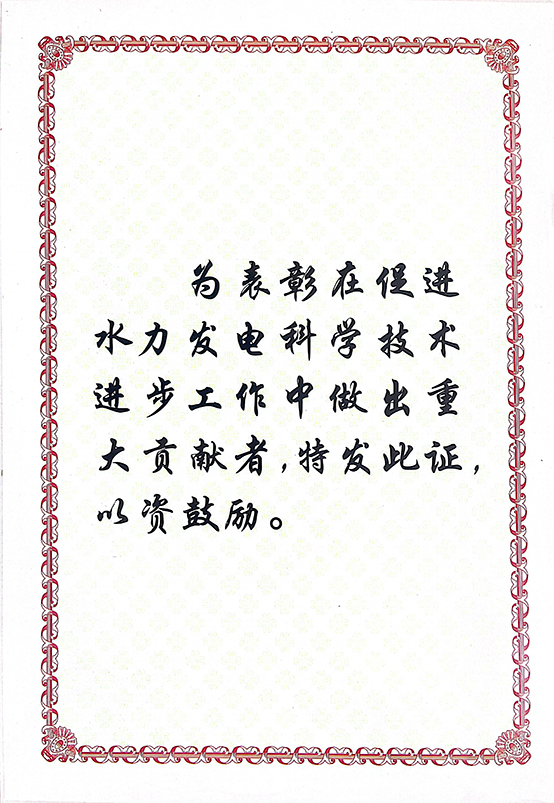 为表彰在促进
水力发电科学技术
进步工作中做出重
大贡献者,特发此证,
以资鼓励。